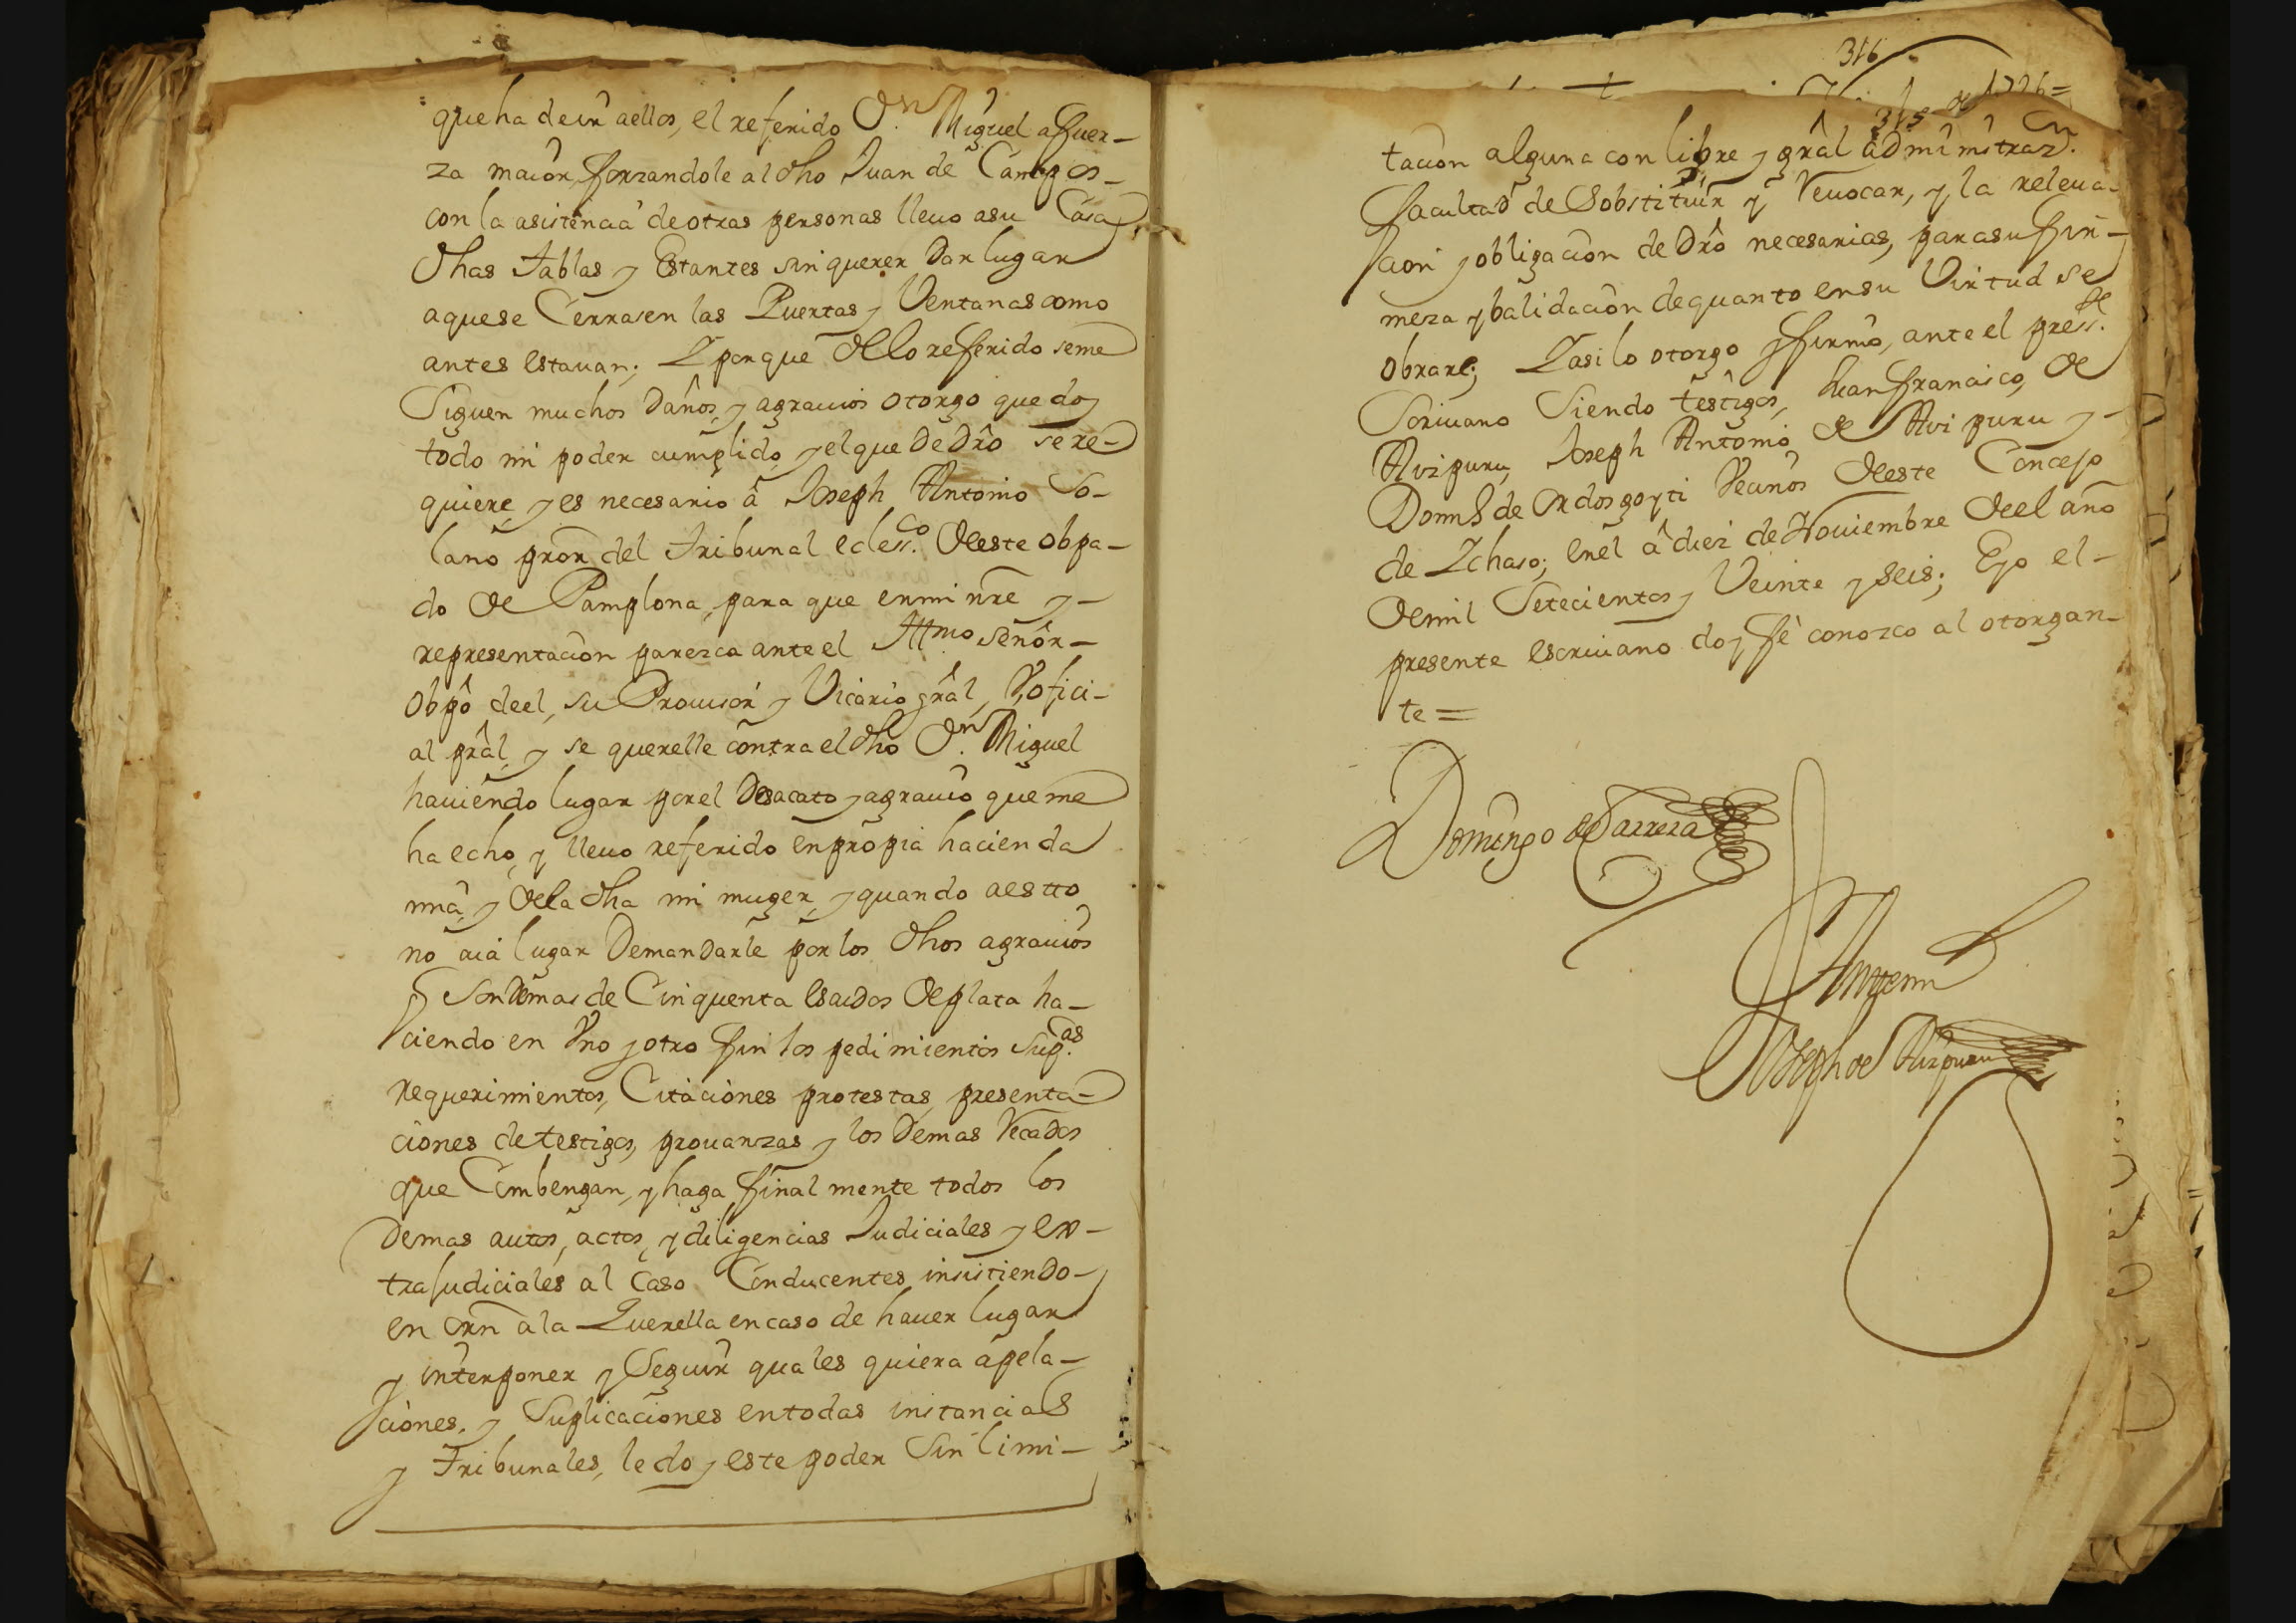 que ha de ir a ellos, el referido Dn. Miguel a fuer-
za maior, forzandole al dho Juan de Campos-
con la asistencia de otras personas lleuo asu Casa
dhas Tablas y Estantes sin querer Dar lugar
a que se Cerrasen las Puertas y Ventanas como
antes estauan; Y porque de lo referido se me
Siguen muchos Daños, y agrauios otorgo que doy
todo mi poder cumplido, y el que de Dro se re-
quiere, y es necesario â Joseph Antonio So-
lano pror del Tribunal eclessco. de este obpa-
do de Pamplona, para que en mi nre y-
representacion parezca ante el Illmo señor-
Obpô de el, su Prouisor y Vicario grâl, V, ofici-
al prâl, y se querelle contra el dho Dn. Miguel
hauiendo lugar por el Desacato y agrauio que me
ha echo, y lleuo referido en propia hacienda
mia, y de la dha mi muger, y quando a estto
no aia lugar Demandarle por los dhos agrauios
q son demas de Cinquenta escudos de plata ha-
ciendo en Vno y otro fin los pedimientos Supas.
requerimientos, Citaciones protestas, presenta-
ciones de testigos, prouanzas y los Demas recados
que Combengan, y haga finalmente todos los
Demas autos, actos, y diligencias Judiciales y ex-
traJudiciales al caso Conducentes, insistiendo-
en orn a la Querella en caso de hauer lugar
y interponer y Seguir quales quiera apela-
ciones, y Suplicaciones en todas instancias
y Tribunales, le doy este poder Sin limi-
316
315 1726=
tacion alguna con libre y grâl administrazn.
facultad de Sobstituir y reuocar, y la releua-
cion y obligacion de Drô necesarias, para su fir-
meza y balidacion de quanto en su Virtud se
obrare; Y asi lo otorgo y firmo, ante el presste.
Scriuano Siendo testigos, Juan francisco, de
Aizpuru, Joseph Antonio de Aizpuru y-
Domis de Ordosgoyti Vecinos de este Concejo
de Ychaso; en el â diez de Nouiembre de el año
de mil Setecientos y Veinte y Seis; E yo el-
presente escriuano doy fè conozco al otorgan-
te =
Domingo de Barrera
Ante mi
Joseph de Aizpuru